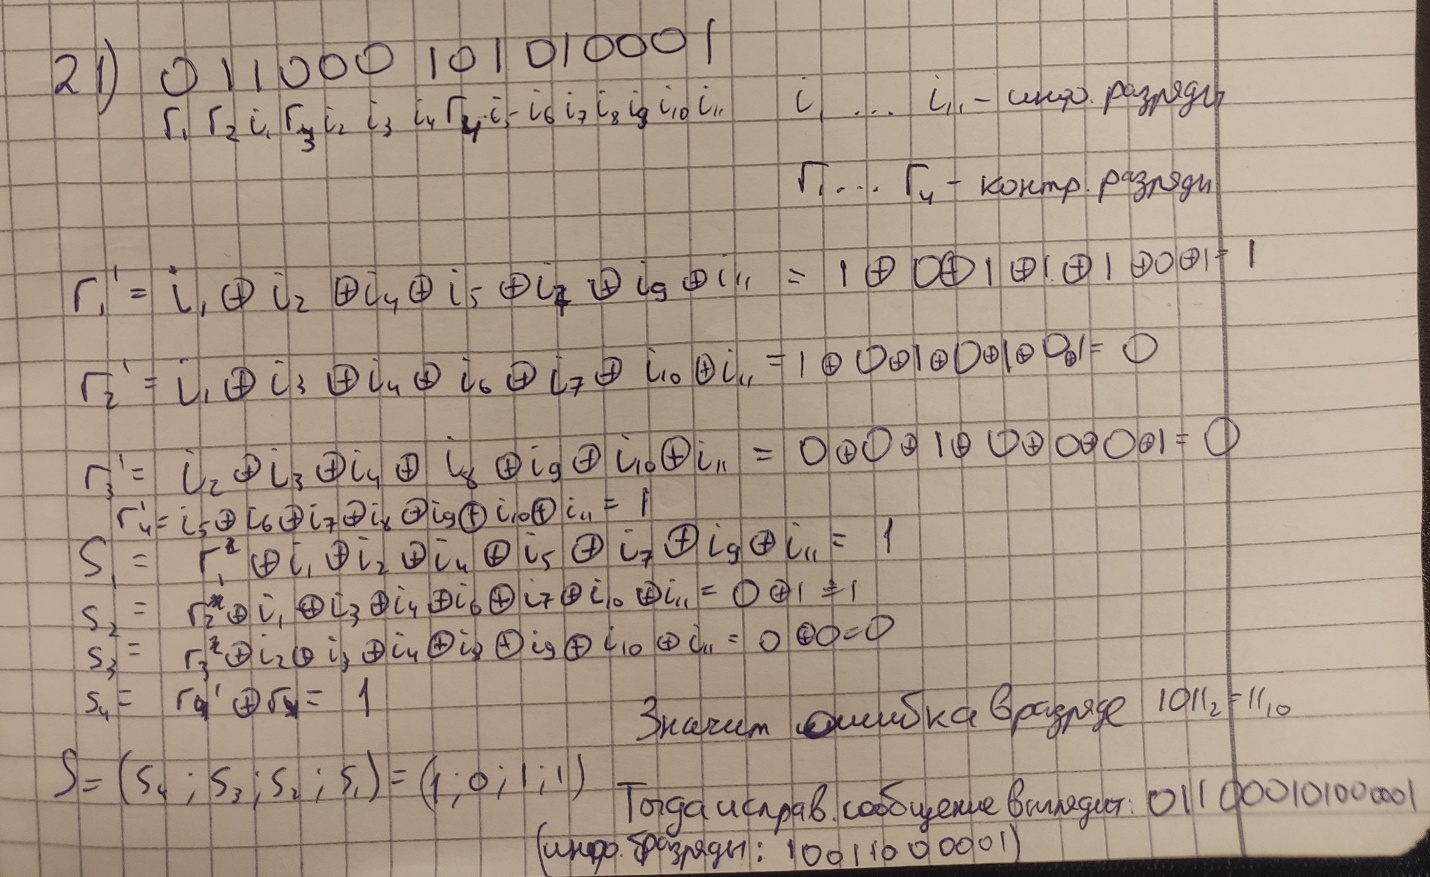 21) 011000101010001
r₁ r₂ i₁ r₃ i₂ i₃ i₄ r₄ i₅ i₆ i₇ i₈ i₉ i₁₀ i₁₁ i₁ ... i₁₁ - инфо. разряды
r₁ ... r₄ - контр. разряды
r₁' = i₁ ⊕ i₂ ⊕ i₄ ⊕ i₅ ⊕ i₇ ⊕ i₉ ⊕ i₁₁ = 1 ⊕ 0 ⊕ 1 ⊕ 1 ⊕ 1 ⊕ 0 ⊕ 1 = 1
r₂' = i₁ ⊕ i₃ ⊕ i₄ ⊕ i₆ ⊕ i₇ ⊕ i₁₀ ⊕ i₁₁ = 1 ⊕ 0 ⊕ 1 ⊕ 0 ⊕ 1 ⊕ 0 ⊕ 1 = 0
r₃' = i₂ ⊕ i₃ ⊕ i₄ ⊕ i₈ ⊕ i₉ ⊕ i₁₀ ⊕ i₁₁ = 0 ⊕ 0 ⊕ 1 ⊕ 0 ⊕ 0 ⊕ 0 ⊕ 1 = 0
r₄' = i₅ ⊕ i₆ ⊕ i₇ ⊕ i₈ ⊕ i₉ ⊕ i₁₀ ⊕ i₁₁ = 1
S₁ = r₁ ⊕ i₁ ⊕ i₂ ⊕ i₄ ⊕ i₅ ⊕ i₇ ⊕ i₉ ⊕ i₁₁ = 1
s₂ = r₂ ⊕ i₁ ⊕ i₃ ⊕ i₄ ⊕ i₆ ⊕ i₇ ⊕ i₁₀ ⊕ i₁₁ = 0 ⊕ 1 = 1
s₃ = r₃ ⊕ i₂ ⊕ i₃ ⊕ i₄ ⊕ i₈ ⊕ i₉ ⊕ i₁₀ ⊕ i₁₁ = 0 ⊕ 0 = 0
s₄ = r₄' ⊕ r₄ = 1
Значит ошибка в разряде 1011₂ = 11₁₀
S = (s₄ ; s₃ ; s₂ ; s₁) = (1 ; 0 ; 1 ; 1)
Тогда исправ. сообщение выглядит: 011000101000001
(инфо. разряды: 10011000001)